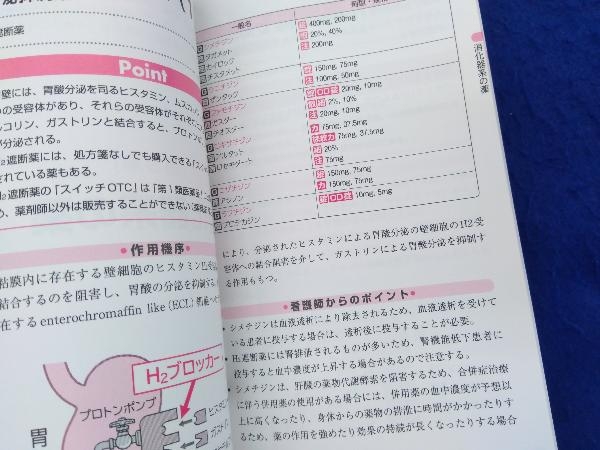 遮断薬
Point
壁には、胃酸分泌を司るヒスタミン、ムスカ
の受容体があり、それらの受容体がそれぞ
ルコリン、ガストリンと結合すると、プロト
が分泌される。
2遮断薬には、処方箋なしでも購入できる「ス
されている薬もある。
2遮断薬の「スイッチOTC」は「第1類医薬品
め、薬剤師以外は販売することができない
・作用機序・
粘膜内に存在する壁細胞のヒスタミン
結合するのを阻害し、胃酸の分泌を抑制する
在するenterochromaffin like (ECL)
H2ブロッカー
プロトンポンプ
ヒスタミ
ガスト
胃
一般名
剤型・規格
シメチジン
タガメット
カイロック
チスタメット
錠 400mg, 200mg
細 20%, 40%
注 200mg
ラニチジン
ザンタック
錠 150mg, 75mg
注 100mg, 50mg
ファモチジン
ガスター
錠 OD錠 20mg, 10mg
散 2%, 10%
注 20mg, 10mg
アルタット
カ 75mg, 37.5mg
75mg, 37.5mg
細 20%
注 75mg
ニザチジン
アシノン
錠 150mg, 75mg
カ 150mg, 75mg
ラフチジン
プロテカジン
錠 OD錠 10mg, 5mg
消化器系の薬
により、分泌されたヒスタミンによる胃酸分泌の壁細胞のH2受
容体への結合阻害を介して、ガストリンによる胃酸分泌を抑制す
る作用ももつ。
・看護師からのポイント・
・シメチジンは血液透析により除去されるため、血液透析を受けて
いる患者に投与する場合は、透析後に投与することが必要。
・H2遮断薬には腎排泄されるものが多いため、腎機能低下患者に
投与すると血中濃度が上昇する場合があるので注意する。
・シメチジンは、肝酸の薬物代謝酵素を阻害するため、合併症治療
に伴う併用薬の使用がある場合には、併用薬の血中濃度が予想以
上に高くなったり、身体からの薬物の排泄に時間がかかったりす
るため、薬の作用を強めたり効果の持続が長くなったりする場合